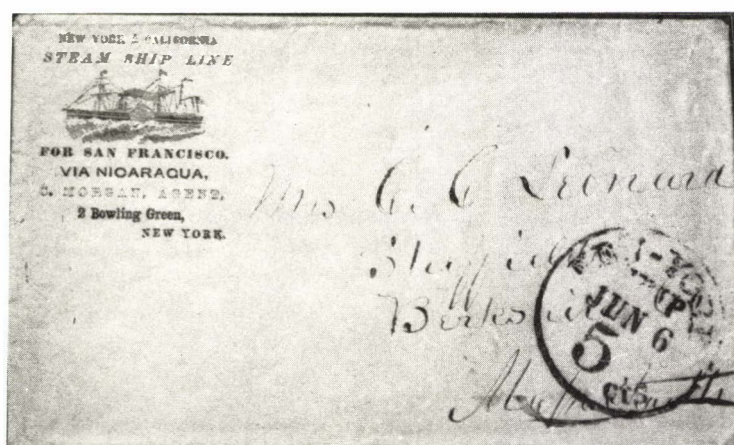 NEW YORK & CALIFORNIA
STEAM SHIP LINE
FOR SAN FRANCISCO.
VIA NICARAGUA,
C. MORGAN, AGENT,
2 Bowling Green,
NEW YORK.
Mrs C. C Leonard
Sheffield
Berkshire
NEW-YORK
SHIP
JUN 6
5
cts